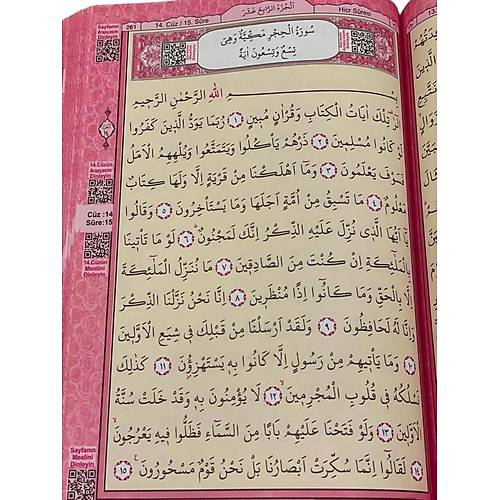 Sayfanın
Arapçasını
Dinleyin
261
14. Cüz / 15. Sûre
اَلْجُزْءُ الرَّابِعَ عَشَرَ
Hicr Sûresi
13.
سُورَةُ الْحِجْرِ مَكِّيَّةٌ وَهِيَ
تِسْعٌ وَتِسْعُونَ اٰيَةً
بِسْــــمِ اللّٰهِ الرَّحْمٰنِ الرَّحِيمِ
الٓرٰ تِلْكَ اٰيَاتُ الْكِتَابِ وَقُرْاٰنٍ مُبٖينٍ ﴿١﴾ رُبَمَا يَوَدُّ الَّذٖينَ كَفَرُوا
لَوْ كَانُوا مُسْلِمٖينَ ﴿٢﴾ ذَرْهُمْ يَأْكُلُوا وَيَتَمَتَّعُوا وَيُلْهِهِمُ الْاَمَلُ
فَسَوْفَ يَعْلَمُونَ ﴿٣﴾ وَمَٓا اَهْلَكْنَا مِنْ قَرْيَةٍ اِلَّا وَلَهَا كِتَابٌ
مَعْلُومٌ ﴿٤﴾ مَا تَسْبِقُ مِنْ اُمَّةٍ اَجَلَهَا وَمَا يَسْتَأْخِرُونَ ﴿٥﴾ وَقَالُوا
يَٓا اَيُّهَا الَّذٖي نُزِّلَ عَلَيْهِ الذِّكْرُ اِنَّكَ لَمَجْنُونٌ ﴿٦﴾ لَوْ مَا تَأْتٖينَا
بِالْمَلٰٓئِكَةِ اِنْ كُنْتَ مِنَ الصَّادِقٖينَ ﴿٧﴾ مَا نُنَزِّلُ الْمَلٰٓئِكَةَ
اِلَّا بِالْحَقِّ وَمَا كَانُٓوا اِذًا مُنْظَرٖينَ ﴿٨﴾ اِنَّا نَحْنُ نَزَّلْنَا الذِّكْرَ
وَاِنَّا لَهُ لَحَافِظُونَ ﴿٩﴾ وَلَقَدْ اَرْسَلْنَا مِنْ قَبْلِكَ فٖي شِيَعِ الْاَوَّلٖينَ
﴿١٠﴾ وَمَا يَأْتٖيهِمْ مِنْ رَسُولٍ اِلَّا كَانُوا بِهٖ يَسْتَهْزِؤُنَ ﴿١١﴾ كَذٰلِكَ
نَسْلُكُهُ فٖي قُلُوبِ الْمُجْرِمٖينَ ﴿١٢﴾ لَا يُؤْمِنُونَ بِهٖ وَقَدْ خَلَتْ سُنَّةُ
الْاَوَّلٖينَ ﴿١٣﴾ وَلَوْ فَتَحْنَا عَلَيْهِمْ بَابًا مِنَ السَّمَٓاءِ فَظَلُّوا فٖيهِ يَعْرُجُونَ
﴿١٤﴾ لَقَالُٓوا اِنَّمَا سُكِّرَتْ اَبْصَارُنَا بَلْ نَحْنُ قَوْمٌ مَسْحُورُونَ ﴿١٥﴾
14.Cüzün
Arapçasını
Dinleyin
Cüz :14
Sûre:15
14.Cüzün
Mealini
Dinleyin
Sayfanın
Mealini
Dinleyin